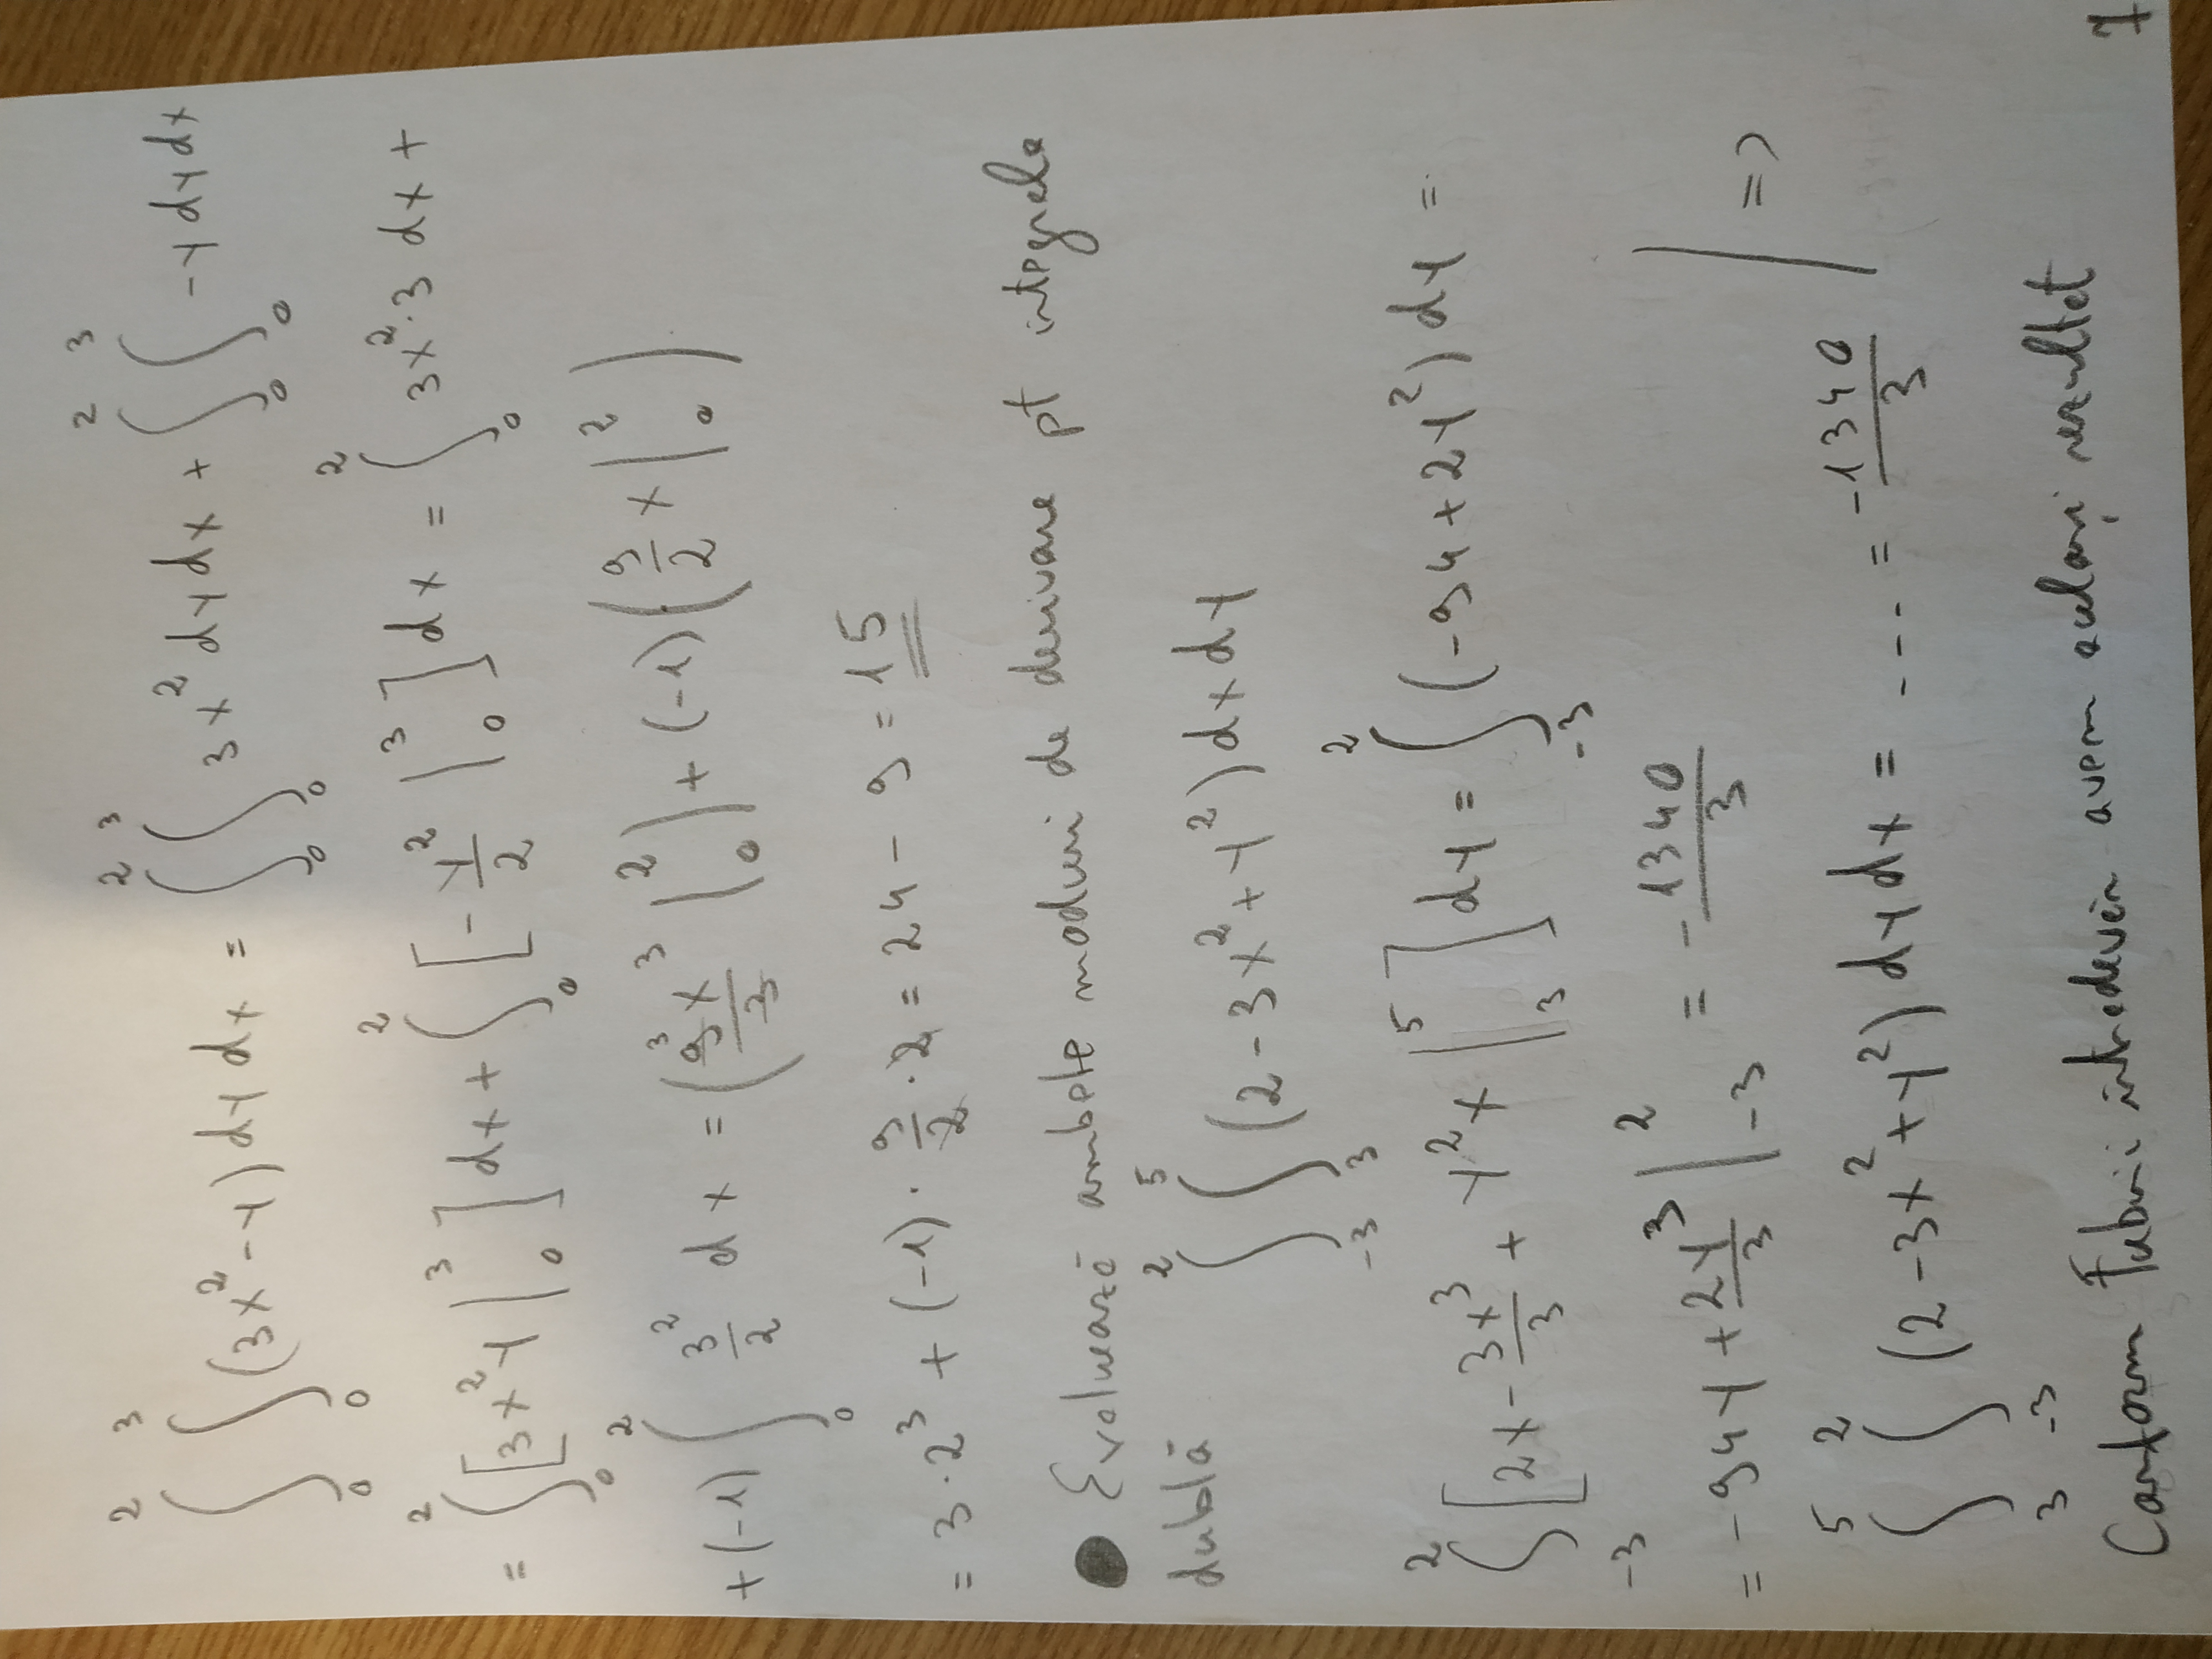 ∫₀² ∫₀³ (3x² - y) dy dx = ∫₀² ∫₀³ 3x² dy dx + ∫₀² ∫₀³ -y dy dx
= ∫₀² [3x²y |₀³] dx + ∫₀² [- y²/2 |₀³] dx = ∫₀² 3x²·3 dx +
+ (-1) ∫₀² 3²/2 dx = (9³x³/3 |₀²) + (-1) (9/2 x |₀²)
= 3·2³ + (-1) · 9/2 · 2 = 24 - 9 = 15
● Evaluează ambele moduri de derivare pt integrala
dublă ∫₋₃² ∫₃⁵ (2 - 3x² + y²) dx dy
∫₋₃² [2x - 3x³/3 + y²x |₃⁵] dy = ∫₋₃² (-94 + 2y²) dy =
= -94y + 2y³/3 |₋₃² = - 1340/3
∫₃⁵ ∫₋₃² (2 - 3x² + y²) dy dx = --- = -1340/3 | =>
Conform Fubini întradevăr avem același rezultat
7